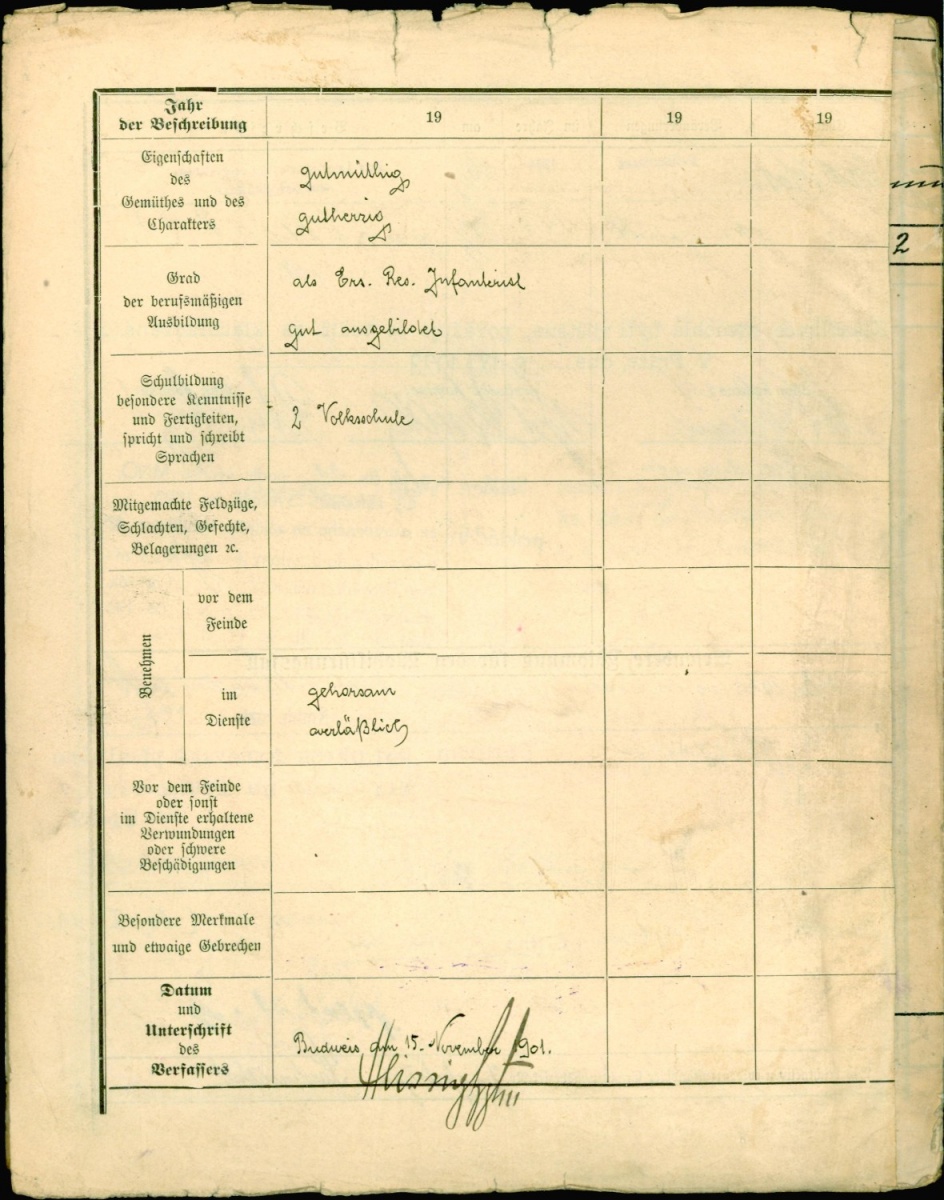 Jahr
der Beschreibung
19
19
19
Eigenschaften
des
Gemüthes und des
Charakters
gutmüthig
gutherzig
2
Grad
der berufsmäßigen
Ausbildung
als Ers. Res. Infanterist
gut ausgebildet
Schulbildung
besondere Kenntnisse
und Fertigkeiten,
spricht und schreibt
Sprachen
2 Volksschule
Mitgemachte Feldzüge,
Schlachten, Gefechte,
Belagerungen ꝛc.
Benehmen
vor dem
Feinde
im
Dienste
gehorsam
verläßlich
Vor dem Feinde
oder sonst
im Dienste erhaltene
Verwundungen
oder schwere
Beschädigungen
Besondere Merkmale
und etwaige Gebrechen
Datum
und
Unterschrift
des
Verfassers
Budweis am 15. November 1901.